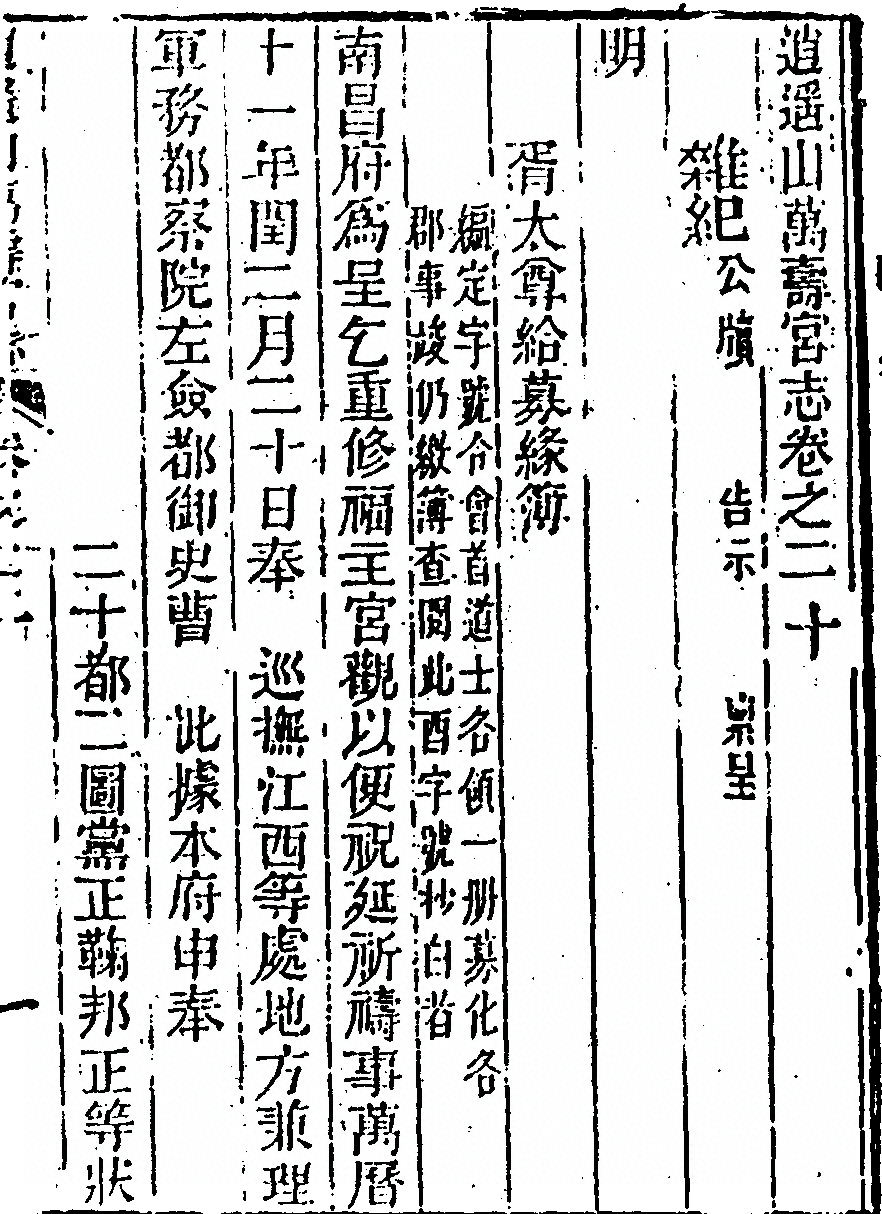 逍遥山萬壽宮志卷之二十
雜紀公牘　告示　稟呈
明
胥太尊給募緣簿
編定字號令會首道士各領一册募化各
郡事竣仍繳簿查閱此酉字號抄白者
南昌府爲呈乞重修福主宮觀以便祝延祈禱事萬曆
十一年閏二月二十日奉　巡撫江西等處地方兼理
軍務都察院左僉都御史曹　批據本府申奉
二十都二圖黨正鞠邦正等狀